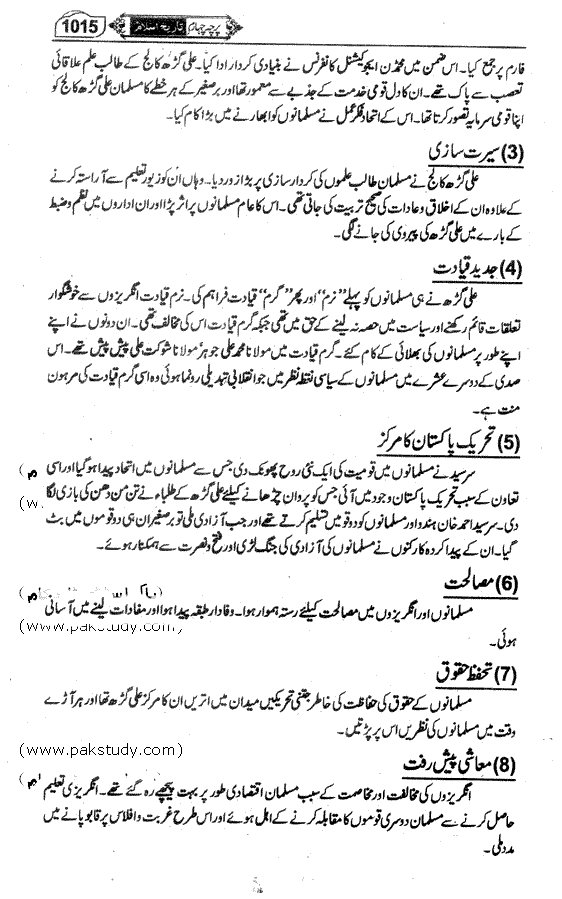 پرچہ چہارم تاریخ اسلام 1015
فارم پر جمع کیا۔ اس ضمن میں محمڈن ایجوکیشنل کانفرنس نے بنیادی کردار ادا کیا۔ علی گڑھ کالج کے طالب علم علاقائی
تعصب سے پاک تھے۔ ان کا دل قومی خدمت کے جذبے سے معمور تھا اور برصغیر کے ہر خطے کا مسلمان علی گڑھ کالج کو
اپنا قومی سرمایہ تصور کرتا تھا۔ اس کے اتحاد فکر عمل نے مسلمانوں کو ابھارنے میں بڑا کام کیا۔
(3) سیرت سازی
علی گڑھ کالج نے مسلمان طالب علموں کی کردار سازی پر بڑا زور دیا۔ وہاں ان کو زیور تعلیم سے آراستہ کرنے
کے علاوہ ان کے اخلاق و عادات کی صحیح تربیت کی جاتی تھی۔ اس کا عام مسلمانوں پر اثر پڑا اور ان اداروں میں نظم و ضبط
کے بارے میں علی گڑھ کی پیروی کی جانے لگی۔
(4) جدید قیادت
علی گڑھ نے ہی مسلمانوں کو پہلے ”نرم“ اور پھر ”گرم“ قیادت فراہم کی۔ نرم قیادت انگریزوں سے خوشگوار
تعلقات قائم رکھنے اور سیاست میں حصہ نہ لینے کے حق میں تھی جبکہ گرم قیادت اس کی مخالف تھی۔ ان دونوں نے اپنے
اپنے طور پر مسلمانوں کی بھلائی کے کام کئے۔ گرم قیادت میں مولانا محمد علی جوہر مولانا شوکت علی پیش پیش تھے۔ اس
صدی کے دوسرے عشرے میں مسلمانوں کے سیاسی نقطہ نظر میں جو انقلابی تبدیلی رونما ہوئی وہ اسی گرم قیادت کی مرہون
منت ہے۔
(5) تحریک پاکستان کا مرکز
سرسید نے مسلمانوں میں قومیت کی ایک نئی روح پھونک دی جس سے مسلمانوں میں اتحاد پیدا ہو گیا اور اسی
تعاون کے سبب تحریک پاکستان وجود میں آئی جس کو پروان چڑھانے کیلئے علی گڑھ کے طلباء نے تن من دھن کی بازی لگا
دی۔ سرسید احمد خان ہندو اور مسلمانوں کو دو قومیں تسلیم کرتے تھے اور جب آزادی ملی تو برصغیر ان ہی دو قوموں میں بٹ
گیا۔ ان کے پیدا کردہ کارکنوں نے مسلمانوں کی آزادی کی جنگ لڑی اور فتح و نصرت سے ہمکنار ہوئے۔
(6) مصالحت
مسلمانوں اور انگریزوں میں مصالحت کیلئے رستہ ہموار ہوا۔ وفادار طبقہ پیدا ہوا اور مفادات لینے میں آسانی
(www.pakstudy.com)
ہوئی۔
(7) تحفظ حقوق
مسلمانوں کے حقوق کی حفاظت کی خاطر جتنی تحریکیں میدان میں اتریں ان کا مرکز علی گڑھ تھا اور ہر آڑے
وقت میں مسلمانوں کی نظریں اس پر پڑتیں۔
(www.pakstudy.com)
(8) معاشی پیش رفت
انگریزوں کی مخالفت اور مخاصمت کے سبب مسلمان اقتصادی طور پر بہت پیچھے رہ گئے تھے۔ انگریزی تعلیم
حاصل کرنے سے مسلمان دوسری قوموں کا مقابلہ کرنے کے اہل ہوئے اور اس طرح غربت و افلاس پر قابو پانے میں
مدد ملی۔